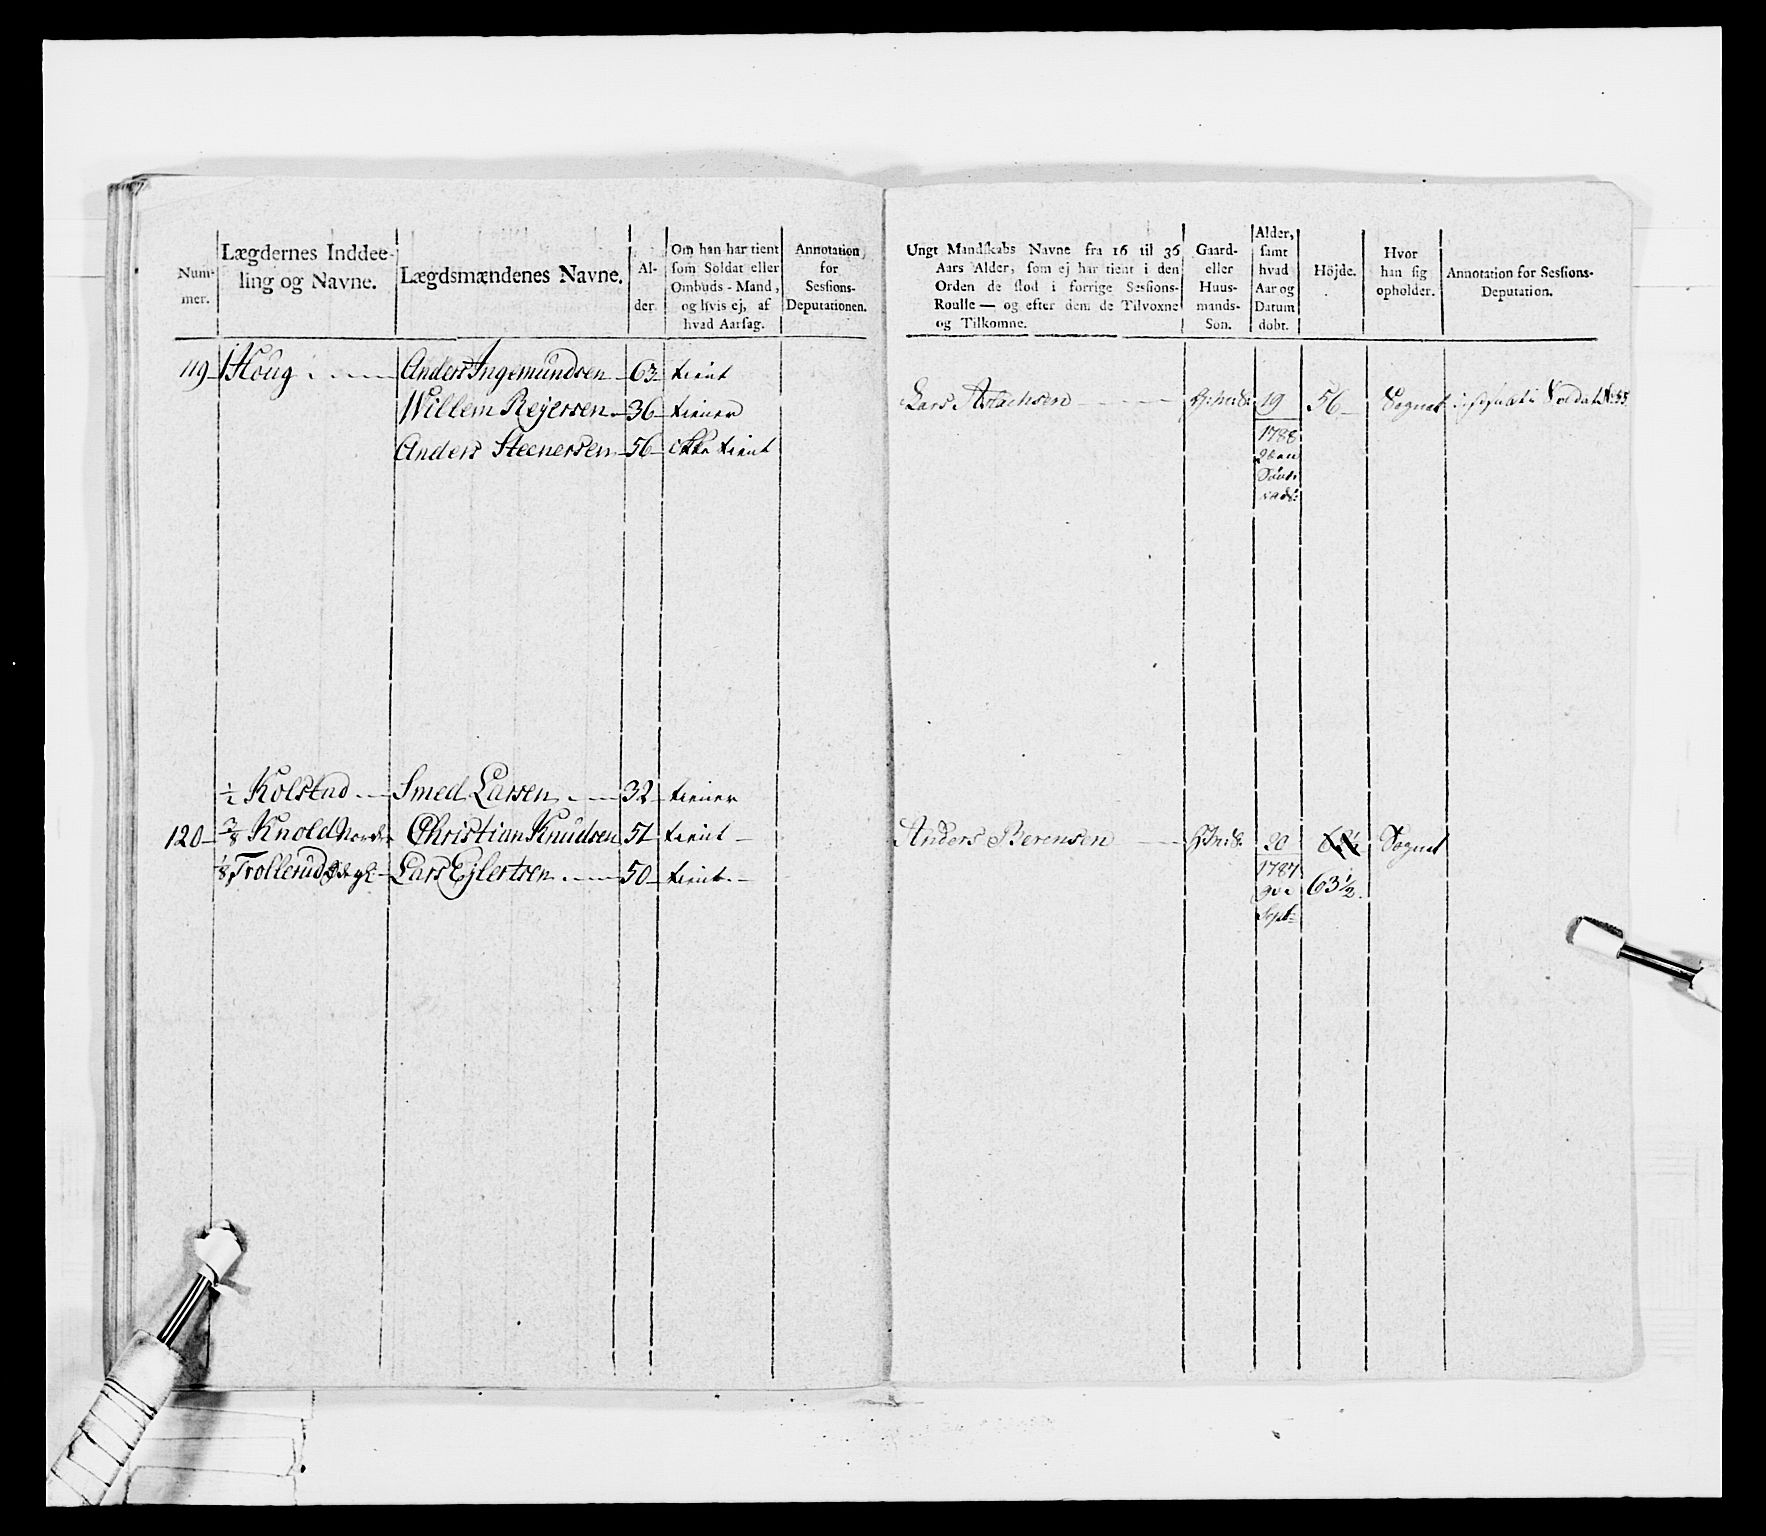 Num-
mer.
Lægdernes Inddee-
ling og Navne.
Lægdsmændenes Navne.
Al-
der.
Om han har tient
som Soldat eller
Ombuds-Mand,
og hvis ej, af
hvad Aarsag.
Annotation
for
Sessions-
Deputationen.
119 1 Houg Anders Ingemundsen 63 tient
Willem Reyersen 36 tiener
Anders Steenersen 56 ikke tient
1/2 Kolstad Smed Larsen 32 tiener
120 3/8 Knold Nordre Christian Knudsen 51 tient
1/8 Trollerud Lars Ejlertsen 50 tient
Ungt Mandskabs Navne fra 16 til 36
Aars Alder, som ej har tient i den
Orden de stod i forrige Sessions-
Roulle — og efter dem de Tilvoxne
og Tilkomne.
Gaard-
eller
Huus-
mands-
Son.
Alder,
samt
hvad
Aar og
Datum
dobt.
Höjde.
Hvor
han sig
opholder.
Annotation for Sessions-
Deputation.
Lars 19 56 Sognet Soldat No 55
1788
Anders Berensen 20 Sognet
1787 63 1/2
Sept